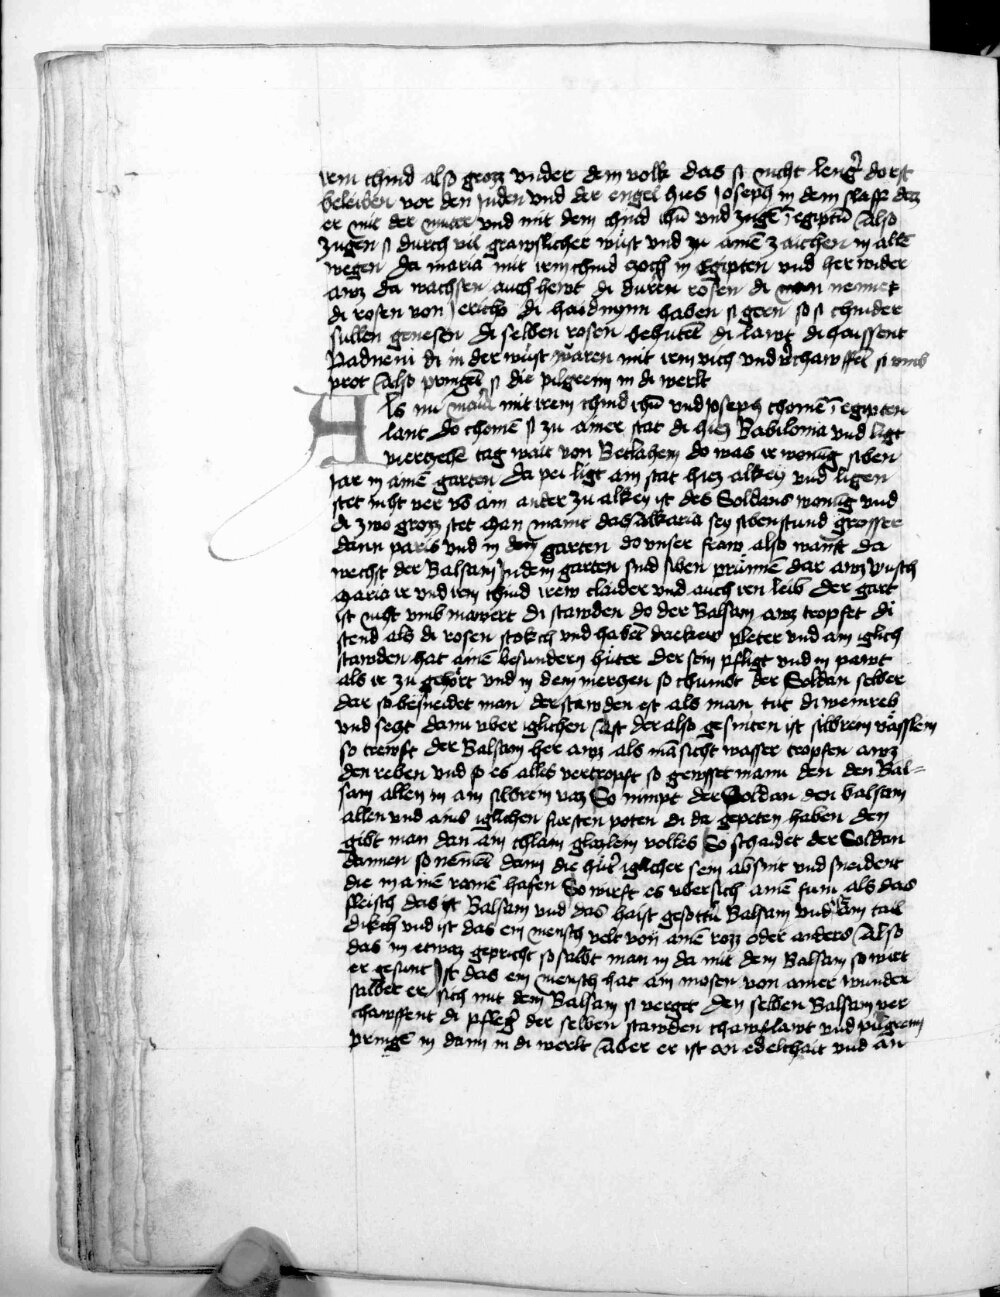 irem chind also grozz vnder dem volk das si nicht leng̉ dorst
beleiben vor den Juden vnd der engel hies Joseph in dem slaff daz
er mit der muter vnd mit dem chind ihū vnd zugē ī egiptū Also
zugen si durch vil grawslicher wüst vnd zu ainē zaichen in allē
wegen da maria mit irem chind czoch in Egipten vnd her wider
awz da wachsen auch hewt di durren rosen di man nennet
di rosen von Jericho di haidnynn haben si gern so si chinder
sullen genesen di selben rosen behutē di lawt di haissent
Padneni di in der wüst waren mit irem vich vnd v̉chawffēt si vmb
prot Also pringēt si die pilgreim in di werlt
Als nu maria mit irem chind ihū vnd Joseph chomē ī egipten
lant do chomē si zu ainer stat di hiez Babilonia vnd ligt
vierzehē tag wait von Betlahem do was ir wonūg siben
Jar in ainē garten da pei ligt ain stat hiez alkeÿ vnd ligen
stet nicht ver vō ain ander zu alkeÿ ist des Soldans wonūg vnd
di zwo grozz stet Man maint das Alkaria seÿ sibenstund grösser
dann paris vnd in dem garten do vnser fraw also want da
wechst der Balsam In dem garten sind siben prünnē dar awz wusch
Maria ir vnd irem chind irew claider vnd auch iren leib der gart
ist nicht vmb mawert di stawden do der Balsam awz tropfet di
stend als di rosen stokch vnd habēt dackew pleter vnd ain iglich
stawden hat ainē besundern hüter der sein pfligt vnd in pawt
als ir zu gehört vnd in dem mertzen so chumbt der Soldan selber
dar so besneidet man der stawden est als man tut di weinreb
vnd setzt dann vber iglichen Ast der also gesniten ist silbrein vässlein
so trewft der Balsam her awz als mā sicht wasser tropfen awz
den reben vnd so es alles vertropft so gewsset mann den den Bal=
sam allen in ain silbrein vaz So nimpt der Soldan den balsam
allen vnd ains iglichen fursten poten di da gepeten haben den
gibt man dan ain chlain glazlein volles So schaidet der Soldan
dannen so nemēt dann die hut̉ iglicher sein absnit vnd sneident
die in ainē rainē hafen So wirft es vbersich ainē faim als das
fleisch das ist Balsam vnd das haist gesottn̄ Balsam vnd ist ain tail
dikch vnd ist das ein mensch velt von ainē rozz oder anders Also
das in etwaz gepricht so salbt man in da mit dem Balsam so wirt
er gesunt Ist das ein mensch hat ain mosen von ainer wunden
salber er sich mit dem Balsam si verget den selben Balsam ver
chawffent di pfleg̉ der selben stawden chawflawt vnd pilgreim
pringē in dann in di werlt Aber er ist an edelchait vnd an